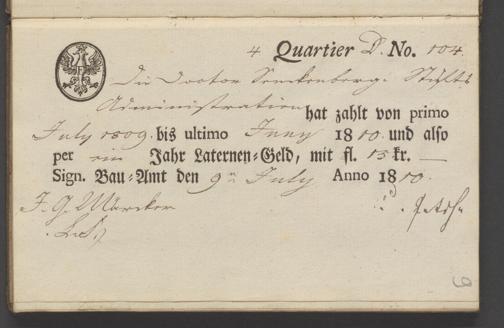 4 Quartier D. No. 104.
Die Doctor Senckenberg. Stifts
Administration hat zahlt von primo
July 1809. bis ultimo Juny 1810. und also
per ein Jahr Laternen-Geld, mit fl. 15 kr. —
Sign. Bau-Amt den 9n July Anno 1810.